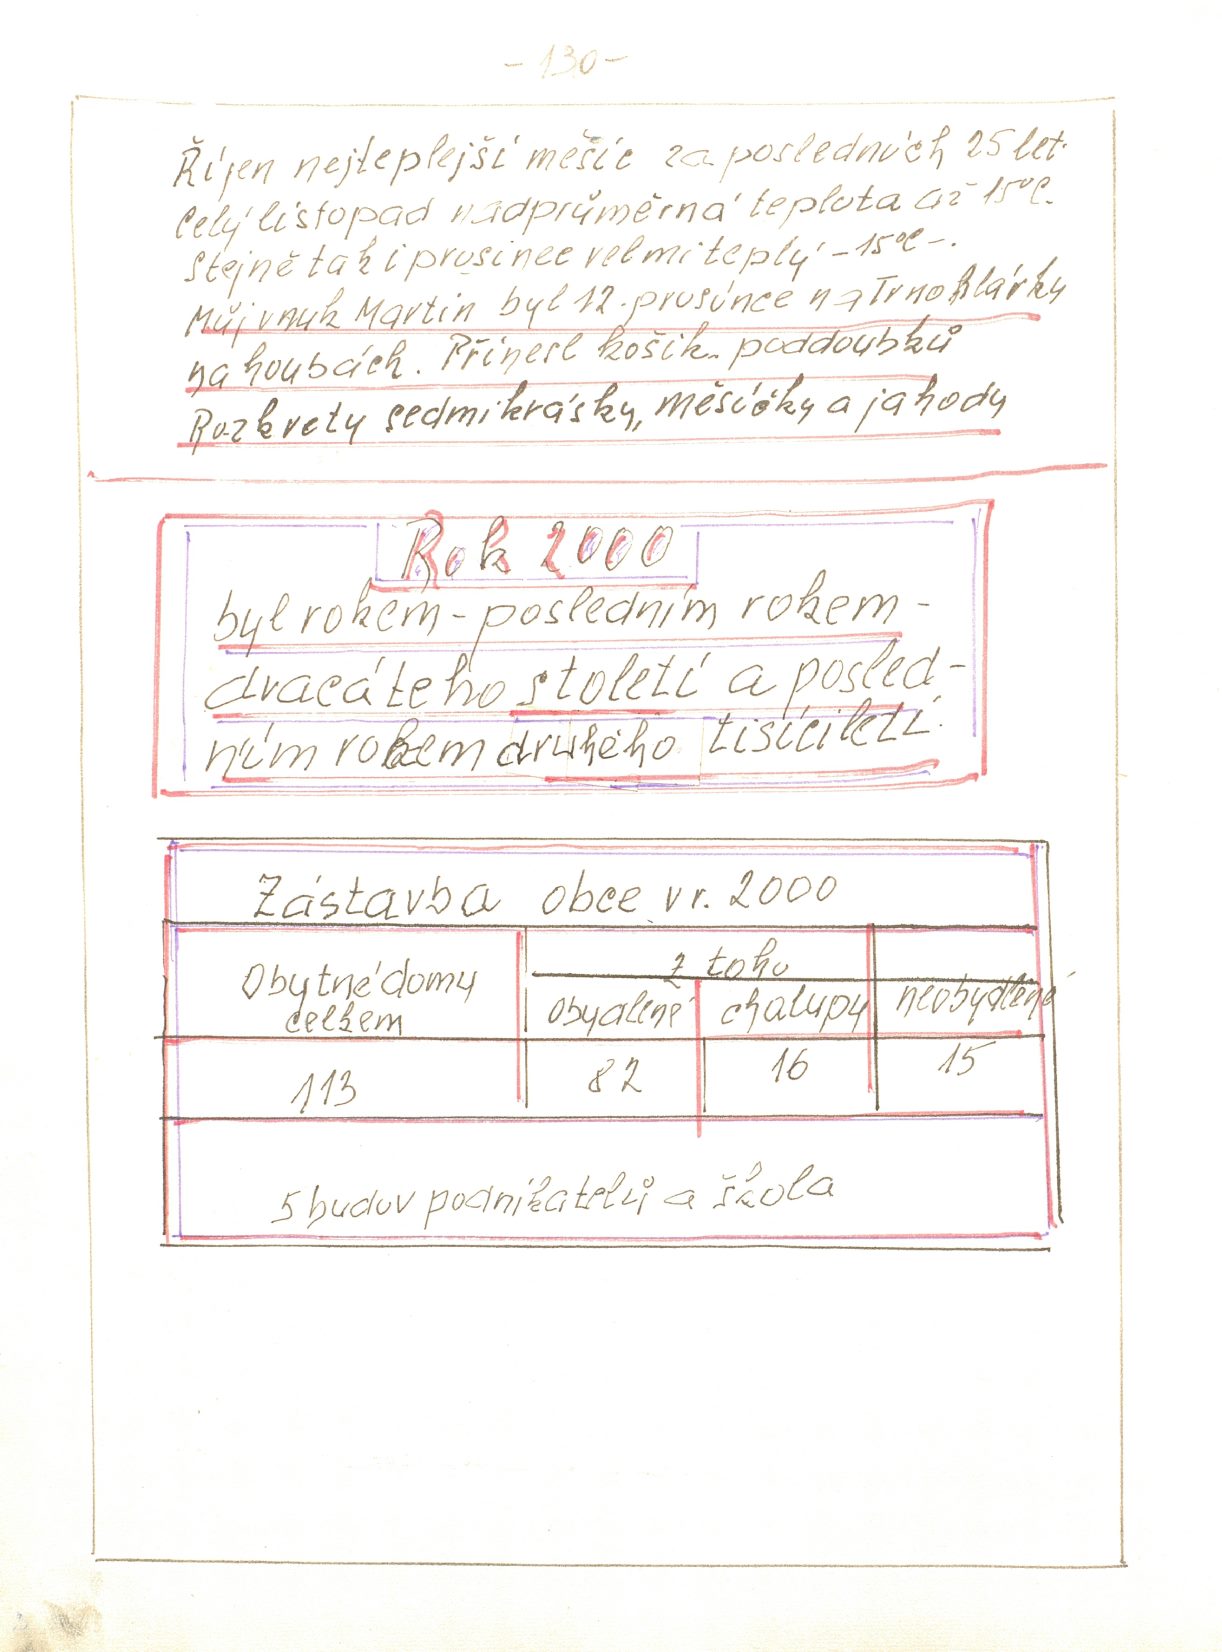 - 130 -
Říjen nejteplejší měsíc za posledních 25 let.
Celý listopad nadprůměrná teplota až 15°C.
Stejně tak i prosinec velmi teplý - 15°C -.
Můj vnuk Martin byl 12. prosince na
na houbách. Přinesl košík poddoubků
Rozkvetly sedmikrásky, měsíčky a jahody
Rok 2000
byl rokem - posledním rokem -
dvacátého století a posled-
ním rokem druhého tisíciletí.
Zástavba obce v r. 2000
Obytné domy
celkem
z toho
obydlené
chalupy
neobydlené
113
82
16
15
5 budov podnikatelů a škola